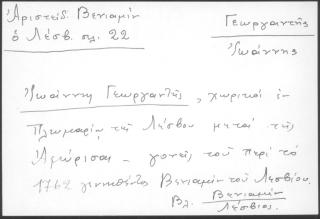 Ἀριστείδ. Βενιαμίν
ὁ Λέσβ. σελ. 22
Γεωργαντῆς
Ἰωάννης
Ἰωάννη Γεωργαντῆς, χωρικοὶ ἐν
Πλωμαρίῳ τῆς Λέσβου μετὰ τῆς
γονεῖς τοῦ περὶ τὸ
1762 γεννηθέντος Βενιαμὶν τοῦ Λεσβίου.
Βλ. Βενιαμὶν
Λέσβιος.